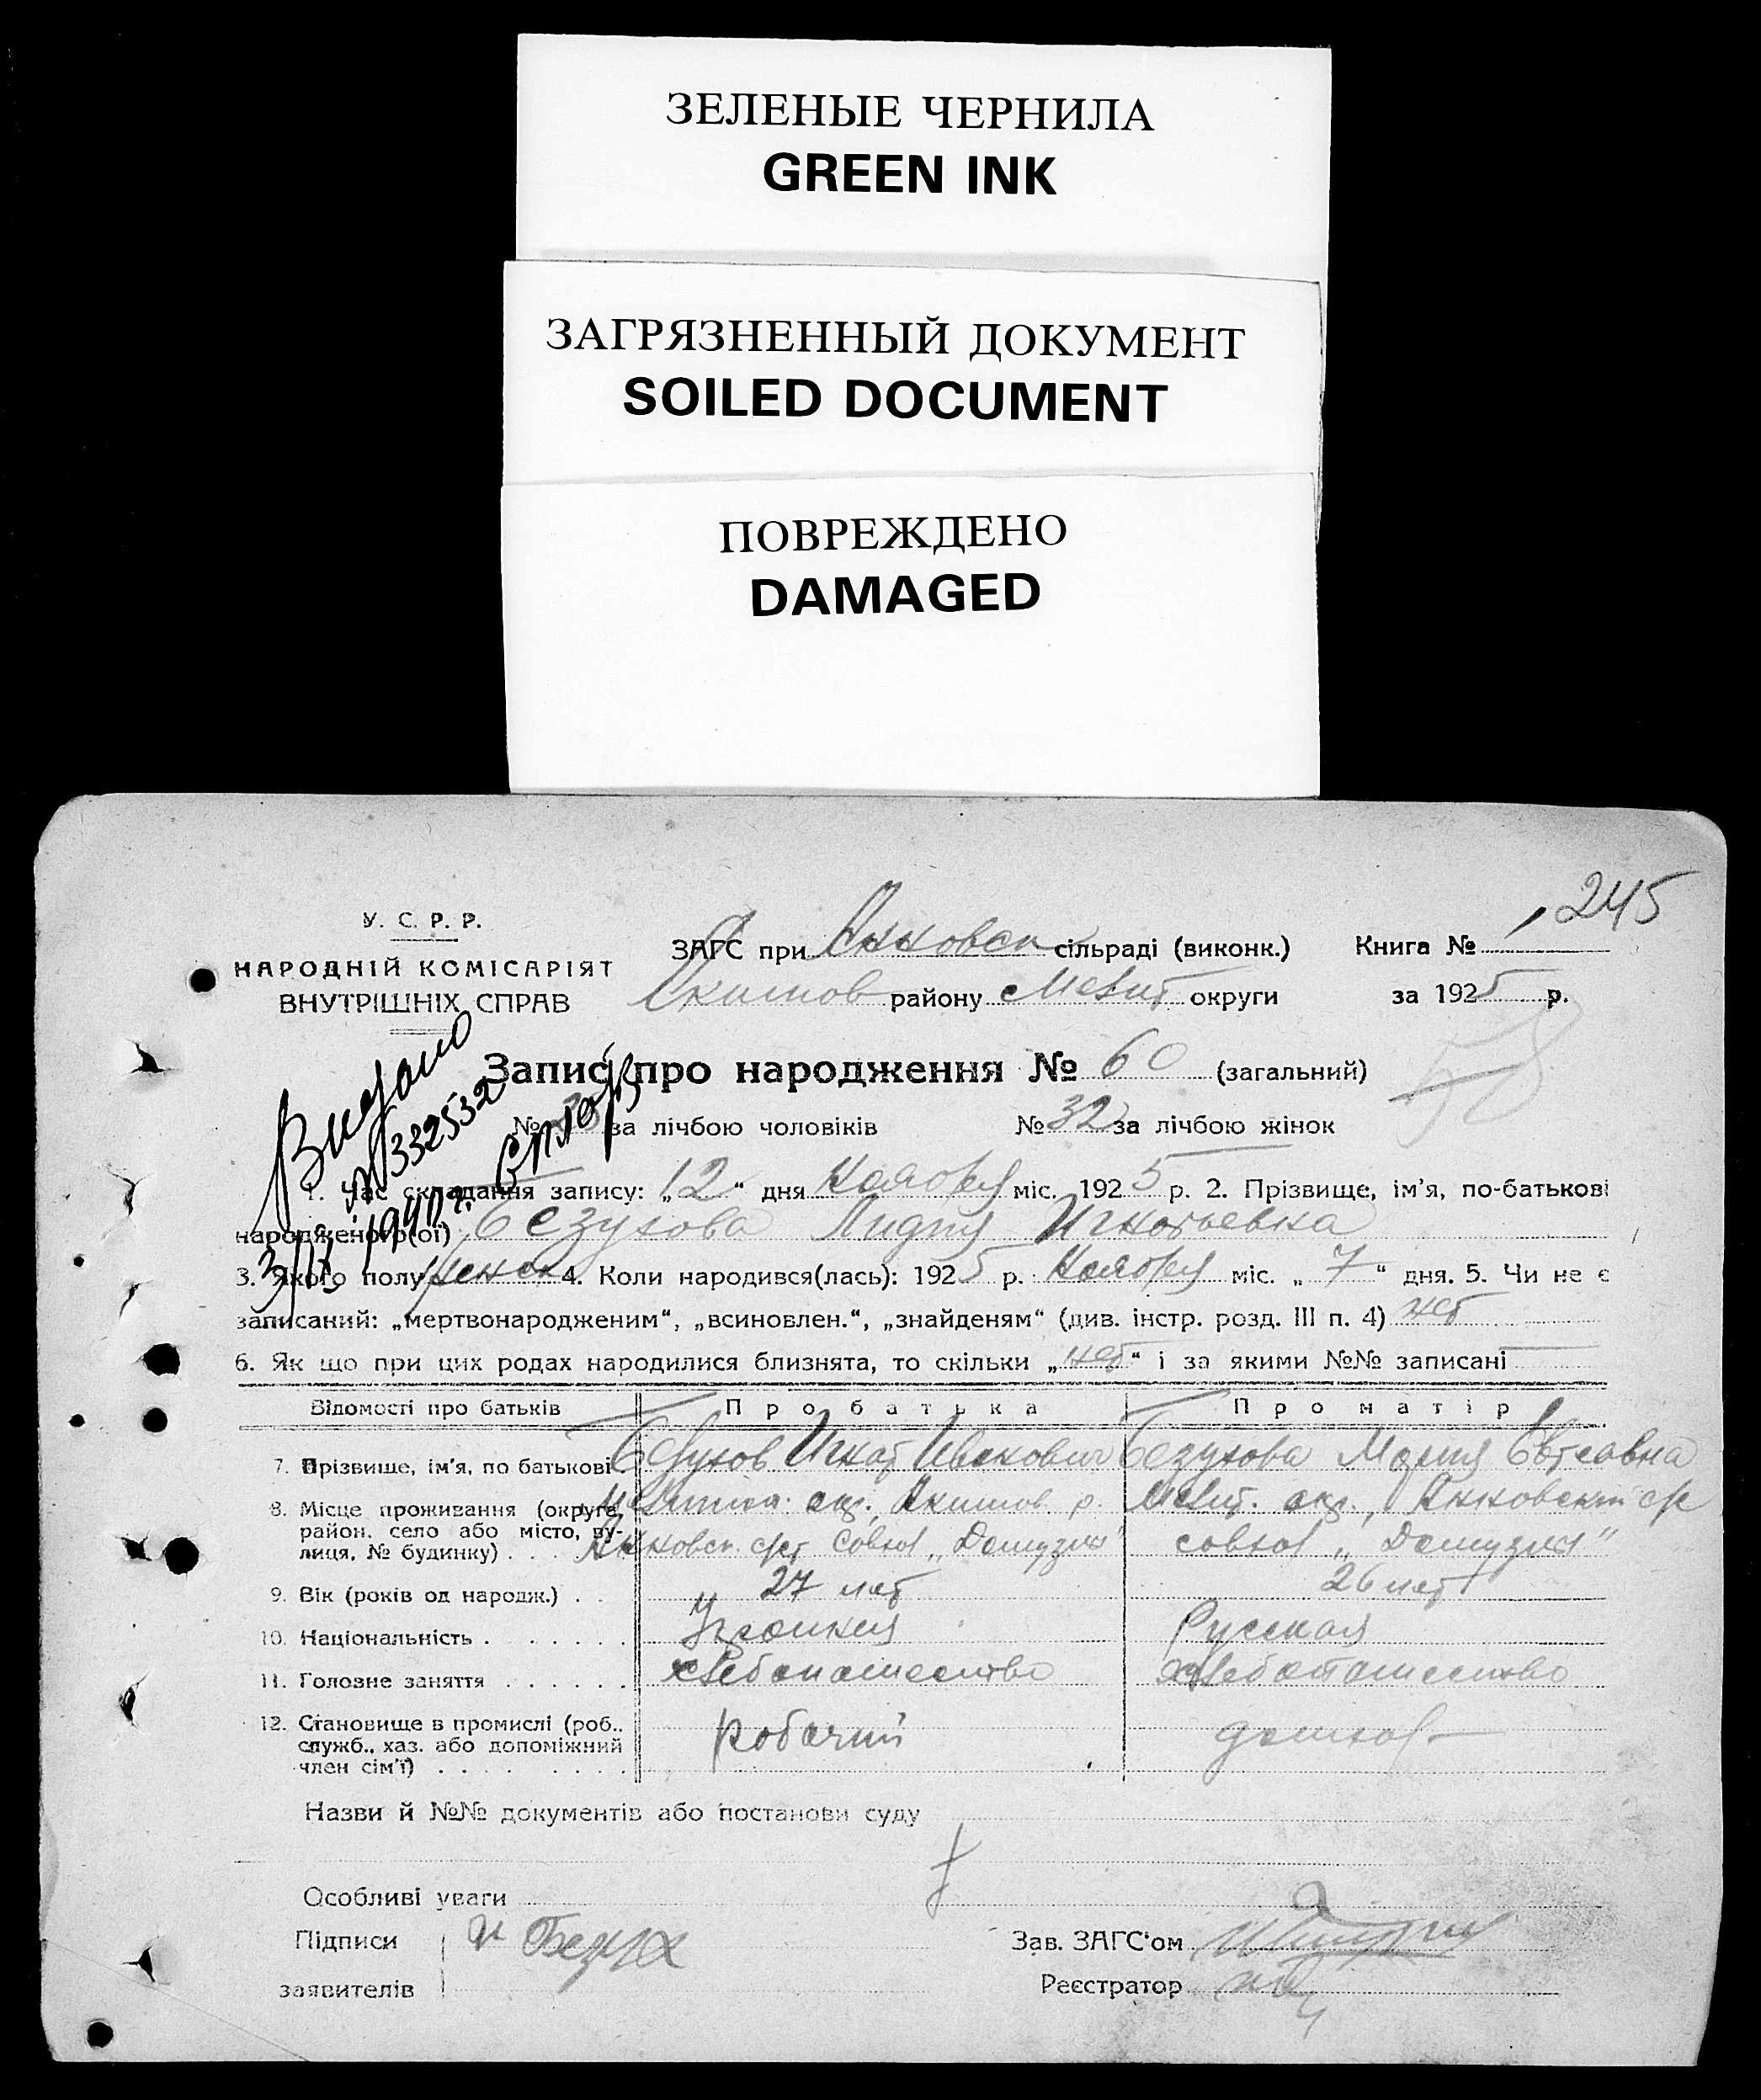 ЗЕЛЕНЫЕ ЧЕРНИЛА
GREEN INK
ЗАГРЯЗНЕННЫЙ ДОКУМЕНТ
SOILED DOCUMENT
ПОВРЕЖДЕНО
DAMAGED
245
У. С. Р. Р.
НАРОДНІЙ КОМІСАРІЯТ
ВНУТРІШНІХ СПРАВ
ЗАГС при Анновск сільраді (виконк.) Книга №
Акимов району Мелит округи за 1925 р.
Видано
№ 332532
1940 г.
Запис про народження № 60 (загальний)
58
№ за лічбою чоловіків № 32 за лічбою жінок
1. Час складання запису: „12“ дня Ноября міс. 1925 р. 2. Прізвище, ім'я, по-батькові
народженого(ої) Безухова Лидия Игнатьевна
3. Якого полу женск 4. Коли народився(лась): 1925 р. Ноября міс. „7“ дня. 5. Чи не є
записаний: „мертвонародженим“, „всиновлен.“, „знайденям“ (див. інстр. розд. III п. 4) нет
6. Як що при цих родах народилися близнята, то скільки „нет“ і за якими №№ записані
Відомості про батьків Про батька Про матір
7. Прізвище, ім'я, по батькові. Безухов Игнат Иванович Безухова Мария Евтеавна
8. Місце проживання (округа, район, село або місто, вулиця, № будинку) . . .
Мелитоп. окр., Акимов. р. Мелит. окр., Анновский с/с
Анновск. с/ст совхоз „Домузла“ совхоз „Домузла“
9. Вік (років од народж.) . . 27 лет 26 лет
10. Національність . . . . . . Украинец Русская
11. Головне заняття . . . . . . хлебопашество хлебопашество
12. Становище в промислі (роб., служб., хаз. або допоміжний член сім'ї) . . . . . . . . Робочий домхоз
Назви й №№ документів або постанови суду
Особливі уваги
Підписи И Безух Зав. ЗАГС'ом
заявителів Реєстратор